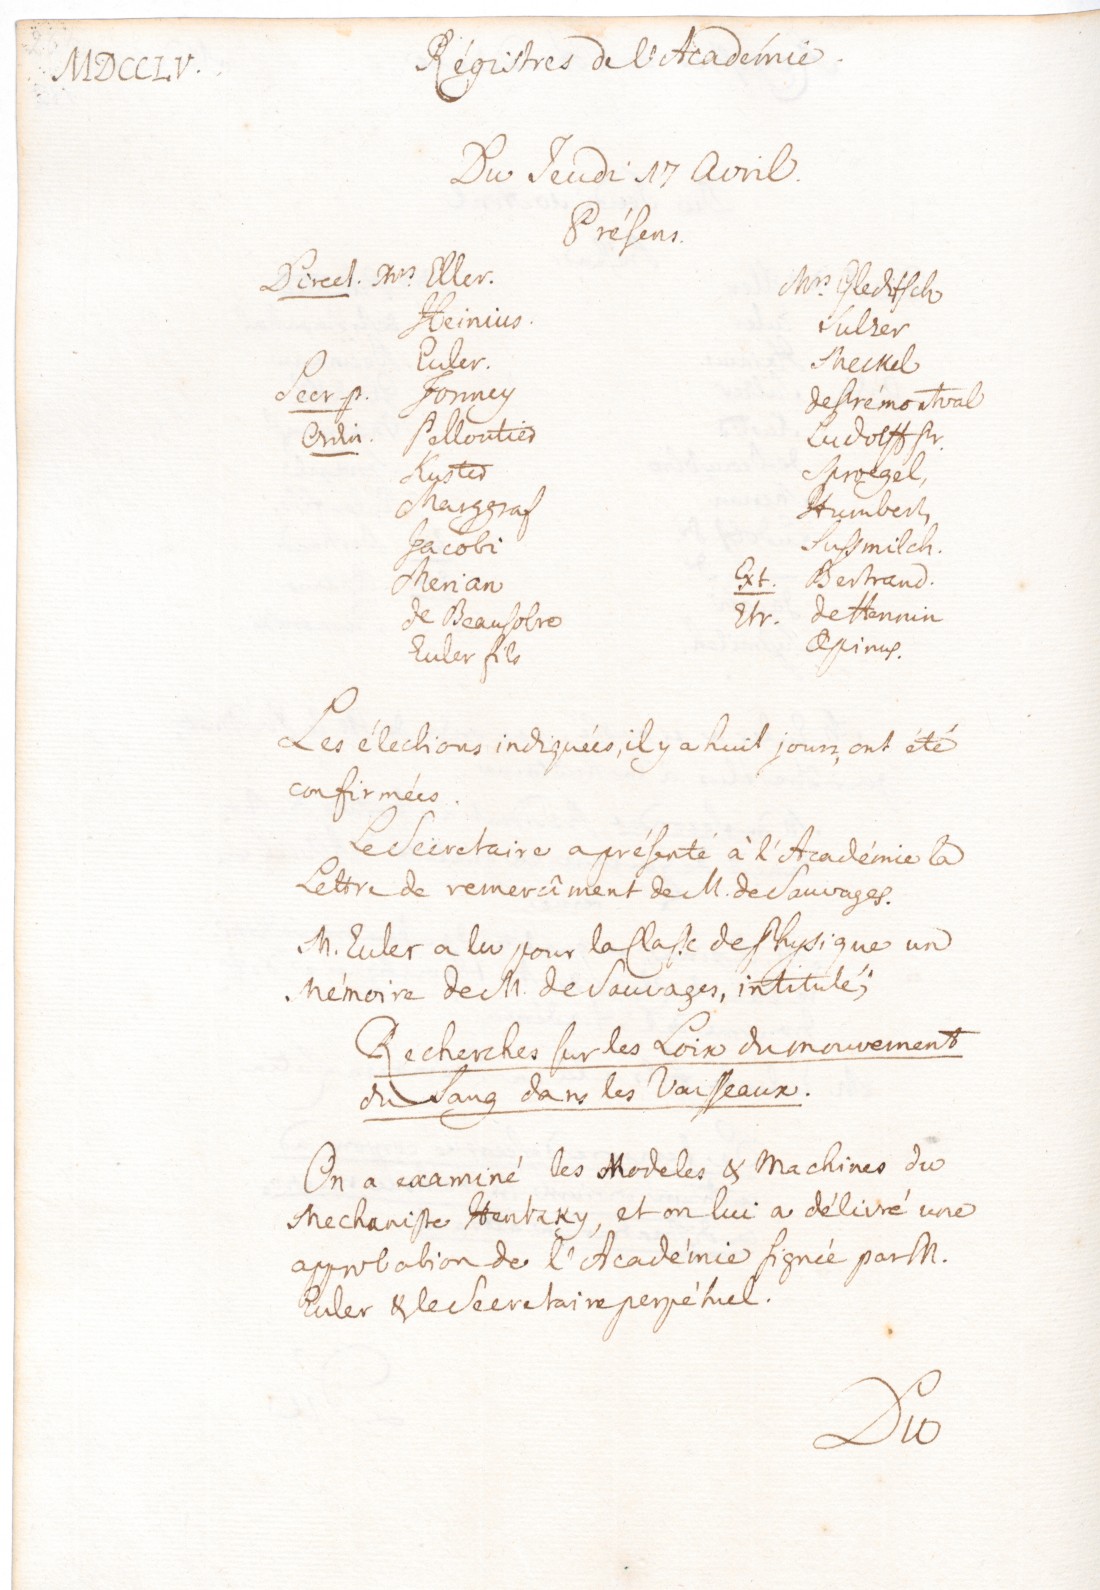 MDCCLV.
Régistres de l'Académie.
Du Jeudi 17 Avril.
Présens.
Direct. Mrs Eller.
Heinius.
Euler.
Secr. p. Formey
Ordin. Pelloutier
Kuster
Marggraf
Jacobi
Merian
de Beausobre
Euler fils
Mrs. Gleditsch
Sulzer
Meckel
de Prémontval
Ludolff Pr.
Sprœgel,
Humbert,
Sussmilch.
Ext. Bertrand.
Etr. de Hennin
Æpinus.
Les élections indiquées, il y a huit jours, ont été
confirmées.
Le Secretaire a présenté à l'Académie la
Lettre de remercîment de M. de Sauvages.
M. Euler a lu pour la Classe de Physique un
Mémoire de M. de Sauvages, intitulé;
Recherches sur les Loix du mouvement
du Sang dans les Vaisseaux.
On a examiné les Modeles & Machines du
Mechaniste Hentzky, et on lui a délivré une
approbation de l'Académie signée par M.
Euler & le Secretaire perpétuel.
Du